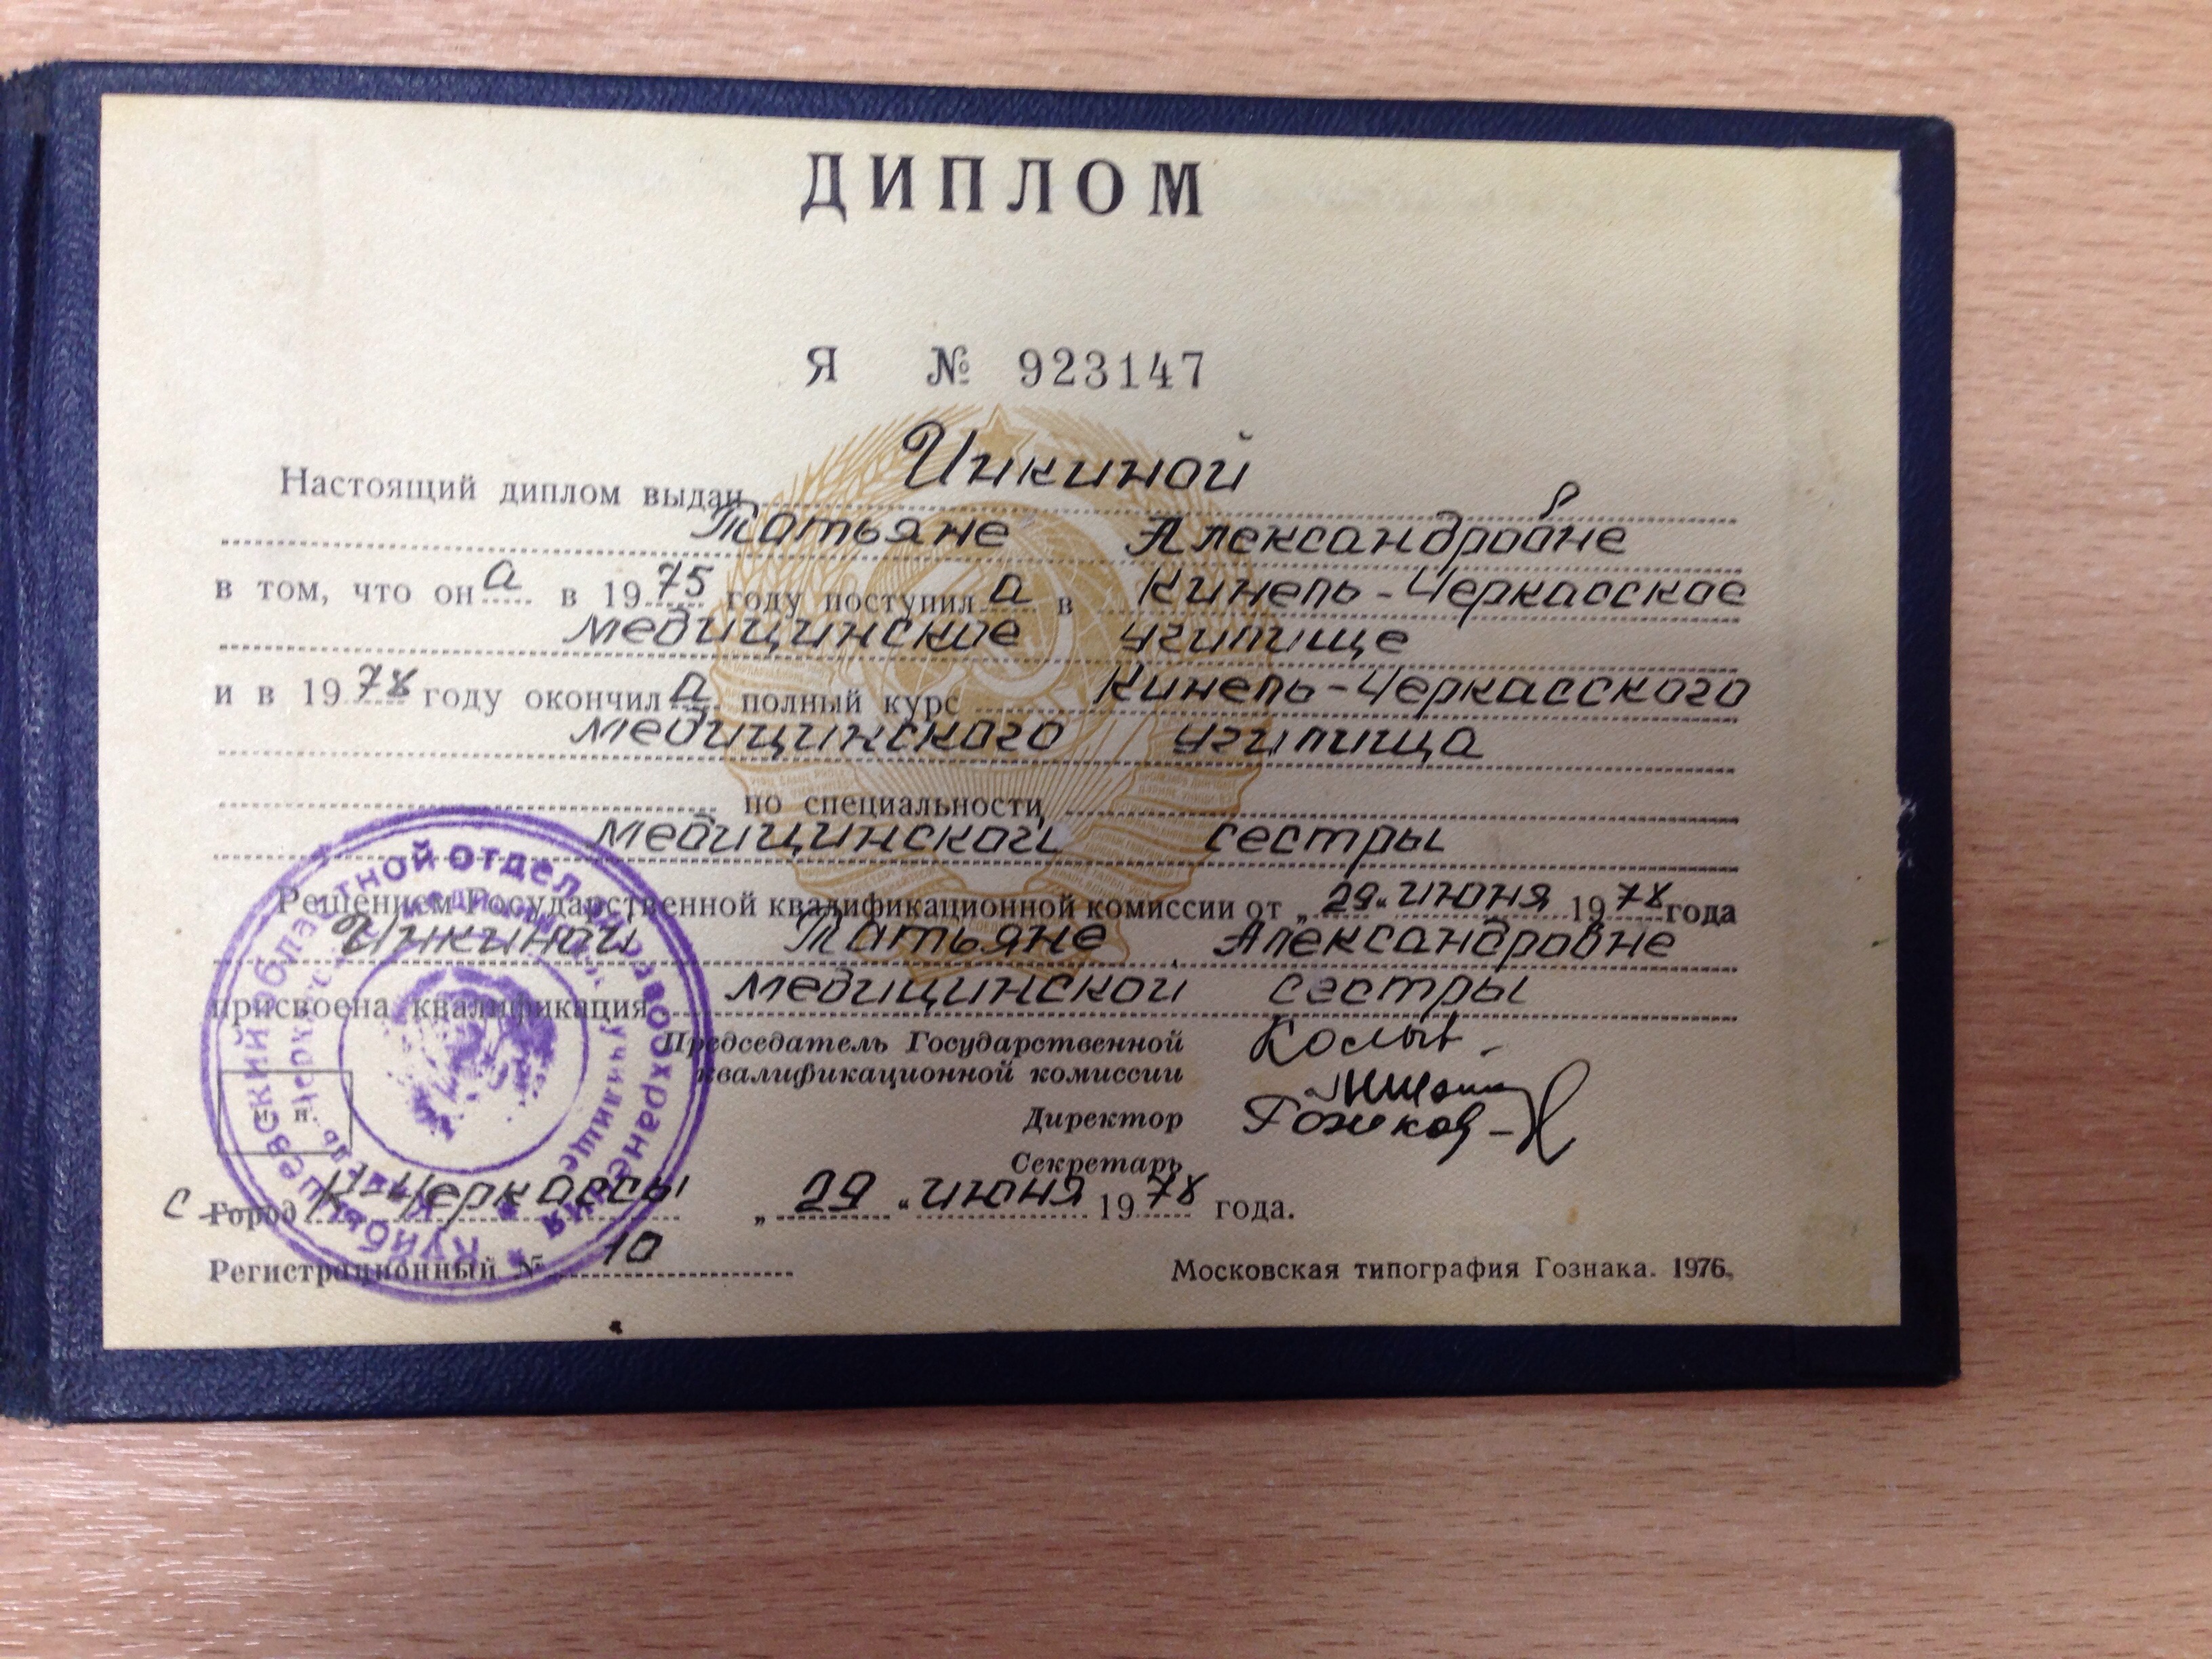 ДИПЛОМ
Я № 923147
Настоящий диплом выдан Инкиной
Татьяне Александровне
в том, что он а в 1975 году поступил а в Кинель-Черкасское
медицинское училище
и в 1978 году окончил а полный курс Кинель-Черкасского
медицинского училища
по специальности
медицинской сестры
Решением Государственной квалификационной комиссии от „29“ июня 1978 года
Инкиной Татьяне Александровне
присвоена квалификация медицинской сестры
Председатель Государственной
квалификационной комиссии
Директор
Секретарь
С Город К-Черкассы „29“ июня 1978 года.
Регистрационный № 10
Московская типография Гознака. 1976.
м. п.
Куйбышевский областной отдел здравоохранения
училище